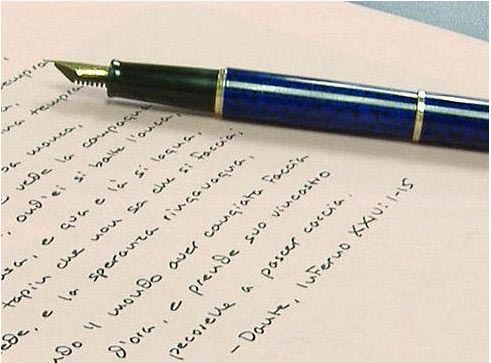 tempra,
manca,
vede la campagna
ond'ei si batte l'anca,
sa, e qua e là si lagna,
tapin che non sa che si faccia;
ede, e la speranza ringavagna,
ndo 'l mondo aver cangiata faccia
d'ora, e prende suo vincastro
pecorelle a pascer caccia.
– Dante, Inferno XXIV: 1-15